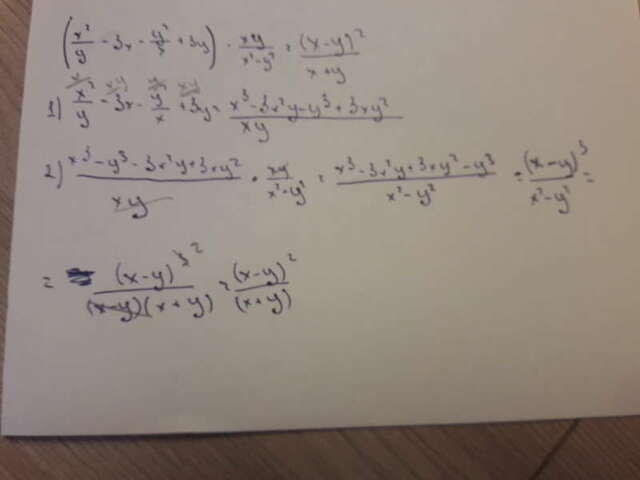 (x²/y - 3x - y²/x + 3y) · xy/(x²-y²) = (x-y)²/(x+y)
1) x²/y - 3x - y²/x + 3y = (x³-3x²y-y³+3xy²)/xy
2) (x³-y³-3x²y+3xy²)/xy · xy/(x²-y²) = (x³-3x²y+3xy²-y³)/(x²-y²) = (x-y)³/(x²-y²) =
= (x-y)³ ²/((x-y)(x+y)) = (x-y)²/(x+y)